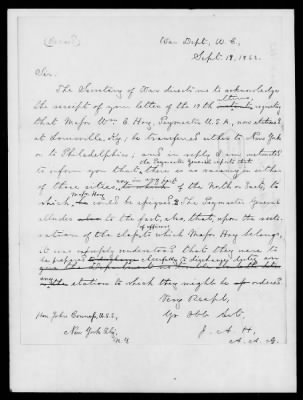 War Dept, W. C.,
Sept. 19, 1862.
Sir:
The Secretary of War directs me to acknowledge
the receipt of your letter of the 17th requesting
that Major Wm. C. Hoy, Paymaster U.S.A., now stationed
at Louisville, Ky., be transferred either to New York
or to Philadelphia; and in reply I am instructed
the Paymaster General reports that
to inform you that there is no vacancy in either
of those cities, of the North or East, to
Major Hoy
which he could be assigned. The Paymaster General
alludes also to the fact, also, that, upon the
of the class to which Major Hoy belongs,
of officers
it was understood that they were to
be prepared cheerfully to discharge duty
any station to which they might be ordered.
Very Respf.,
Yr Obt Svt.
J. A. H,
A. A. G.
Hon. John U.S.S.,
New York City,
N.Y.